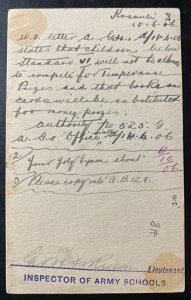 Kasauli 3
18.6.06
W.O. letter a. Gen. 9/14.6.06
states that children below
Standard VI will not be allowed
to compete for Temperance
Prizes and that books and
cards will be substituted
for money prizes.
Authority No 525. G.
a. G.S Office 14.6.06
2/ Your 7 of 6 from about
10
06.
3/ Please copy into A.B. 129.
Lieutenant
INSPECTOR OF ARMY SCHOOLS.